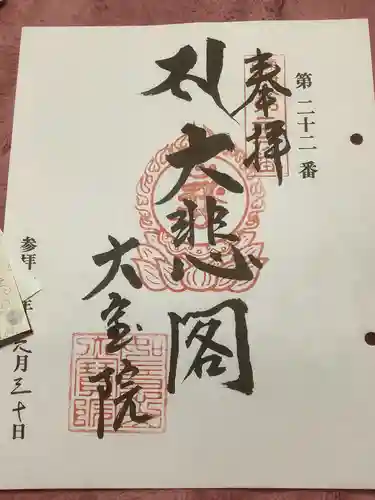 第二十二番
奉拝
大悲閣
大室院
参拝 年
月三十日